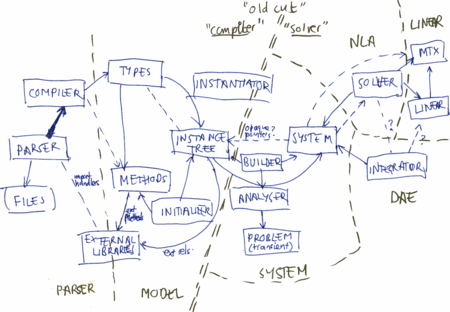 "old cut"
"compiler" "solver"
NLA
LINEAR
MTX
TYPES
COMPILER
INSTANTIATOR
SOLVER
LINEAR
PARSER
INSTANCE
TREE
opaque?
pointers..
SYSTEM
?
?
import
handlers
METHODS
BUILDER
INTEGRATOR
(FILES)
INITIALIZER
ANALYSER
DAE
ext
EXTERNAL
LIBRARIES
ext rels.
PROBLEM
(transient)
SYSTEM
PARSER
MODEL